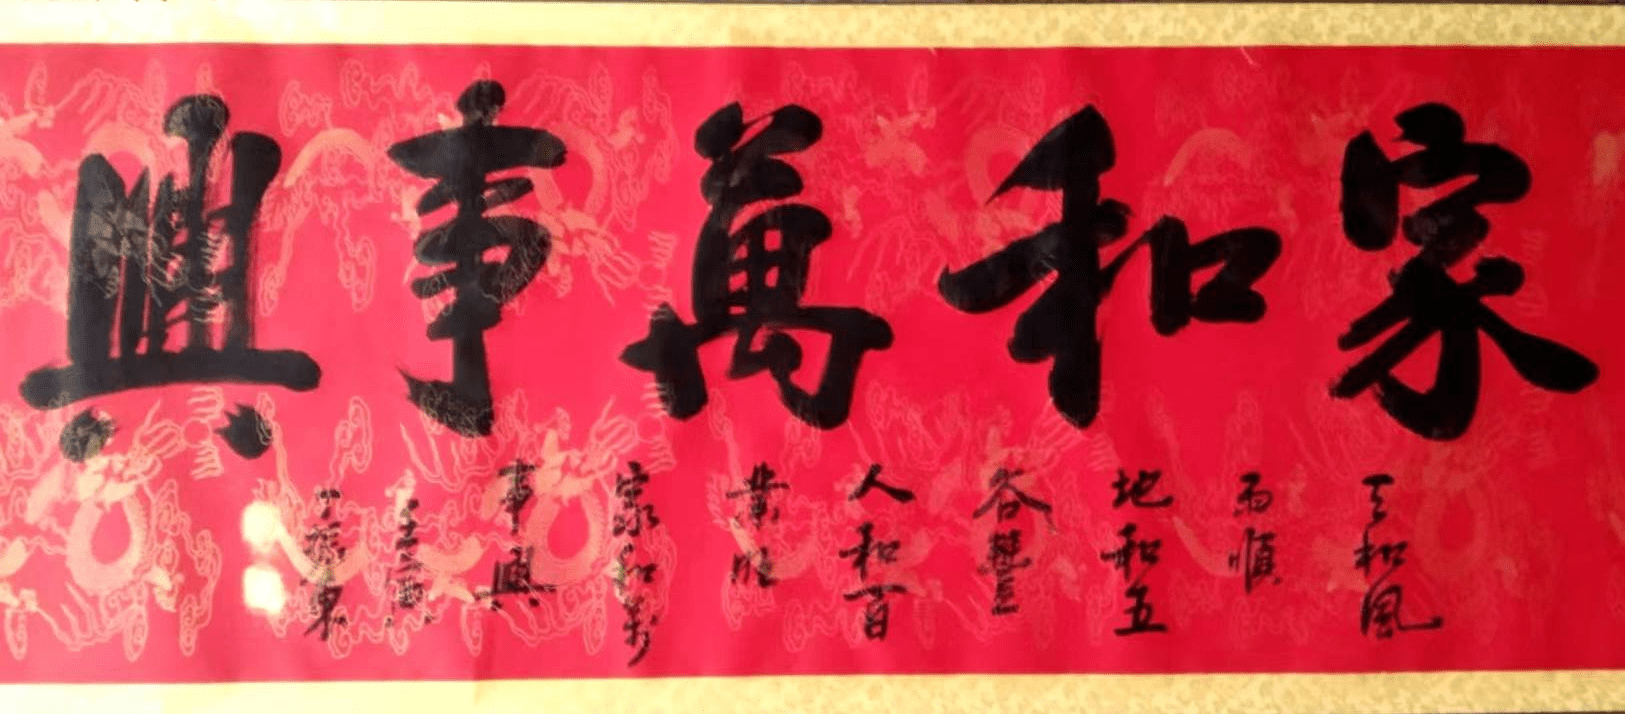 家和萬事興
天和風
雨順
地和五
谷豐
人和百
業旺
家和万
事興